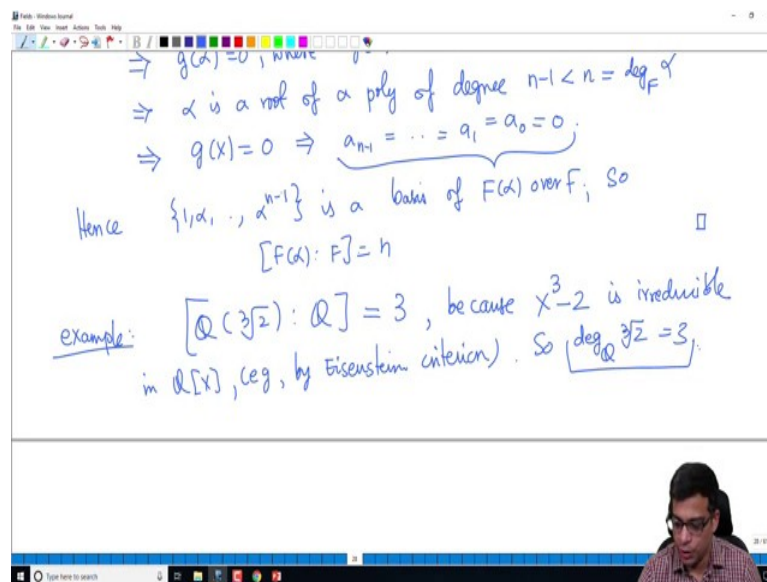 Fields - Windows Journal
File Edit View Insert Actions Tools Help
⇒ g(α)=0, where
⇒ α is a root of a poly of degree n-1 < n = deg_F α
⇒ g(x)=0 ⇒ a_{n-1} = ·· = a_1 = a_0 = 0.
Hence {1, α, ··, α^{n-1}} is a basis of F(α) over F; So
[F(α): F] = n □
example: [Q(∛2): Q] = 3, because x^3-2 is irreducible
in Q[x], (eg, by Eisenstein criterion). So deg_Q ∛2 = 3.
28
Type here to search